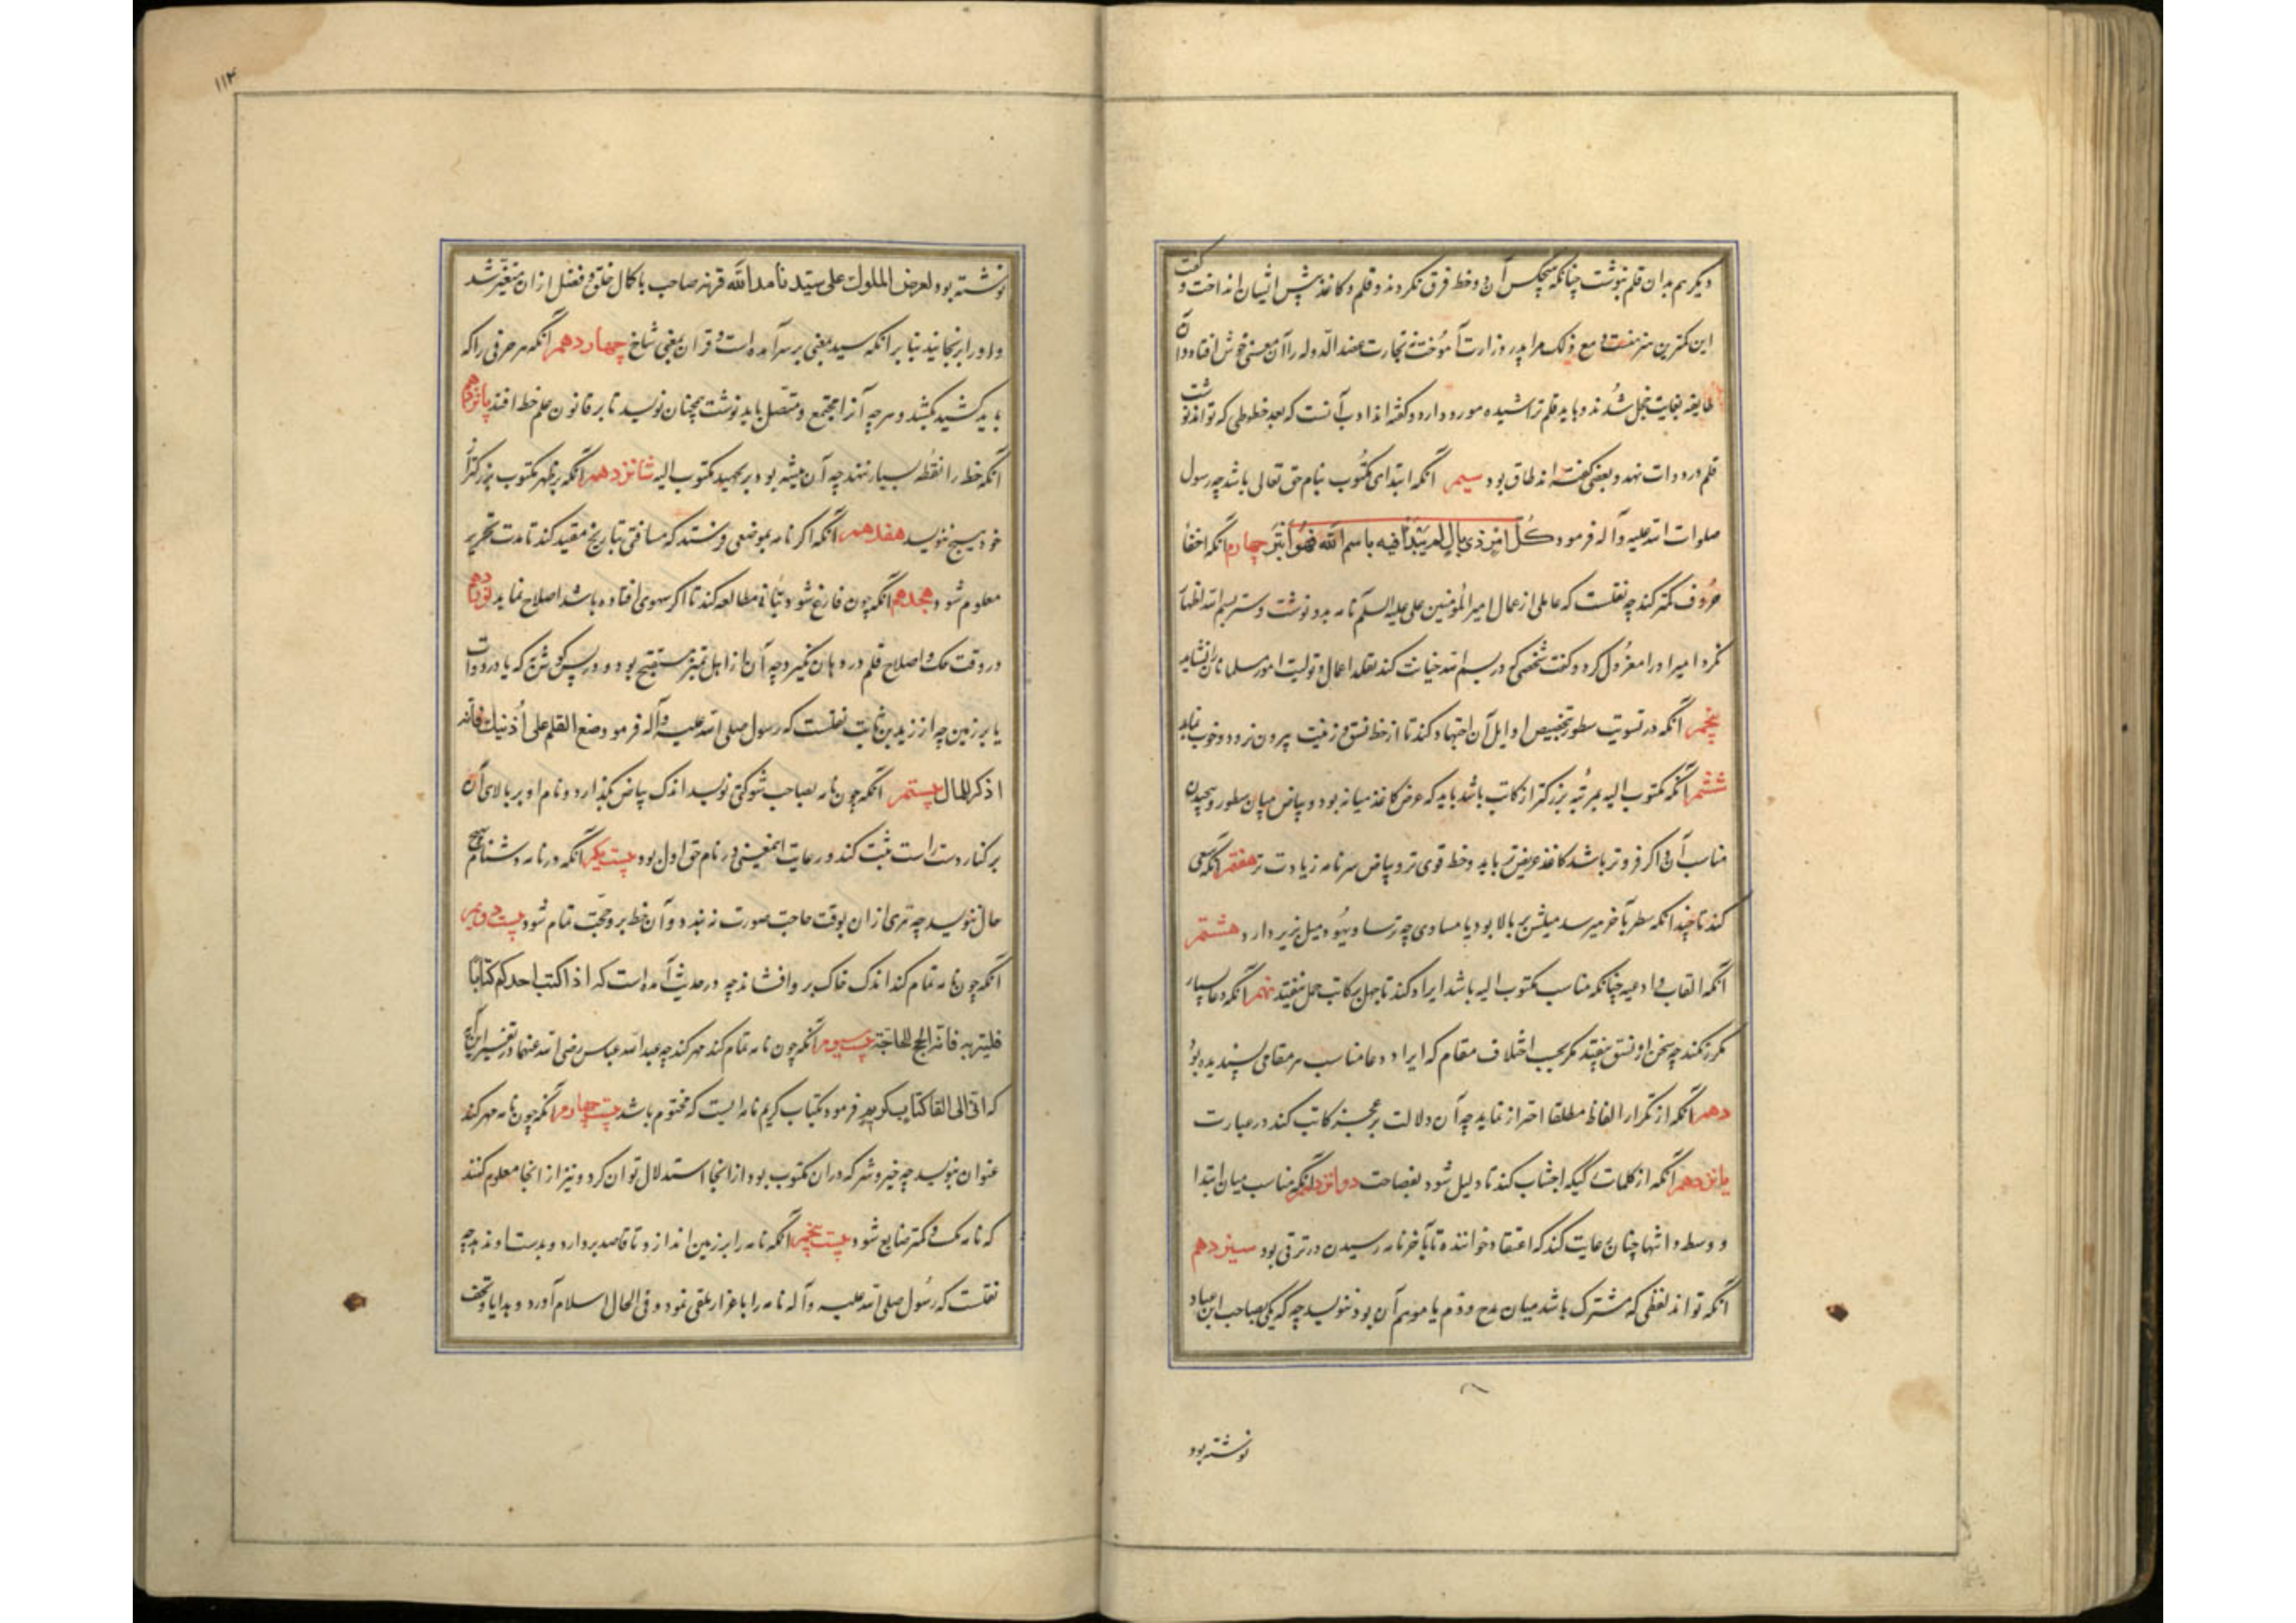 دیکر هم بدان قلم بنوشت چنانکه هیچکس آن دو خط فرق نکردند و قلم و کاغذ پیش ایشان انداخت و گفت
این کمترین هنر منست و مع ذلک مرا پدر وزارت آموخت نه تجارت عضد الدوله را آن معنی خوش افتاد و آن
طایفه بغایت خجل شدند و باید قلم تراشیده مورود دارد و گفته‌اند ادب آنست که بعد خطوطی که تواند نوشت
قلم در دوات نهد و بعضی گفته‌اند طاق بود سیم آنکه ابتدای مکتوب بنام حق تعالی باشد چه رسول
صلوات الله علیه و آله فرمود کل امر ذی بال لم یبدأ فیه باسم الله فهو أبتر چهارم آنکه اخفا
حروف کمتر کند چه نقلست که عاملی از عمال امیر المؤمنین علی علیه السلم نامه بدو نوشت و سین بسم الله اظهار
نکرد امیر او را معزول کرد و گفت شخصی که در بسم الله خیانت کند تقلد اعمال و تولیت امور مسلمانان را نشاید
پنجم آنکه در تسویت سطور بتخصیص اوایل آن اجتهاد کند تا از خط نسق و زینت بیرون نرود و خوب نماید
ششم آنکه مکتوب الیه بمرتبه بزرکتر از کاتب باشد باید که عرض کاغذ میانه بود و بیاض میان سطور و پیچیدن
مناسب آن و اکر فروتر باشد کاغذ عریض‌تر باید و خط قوی تر و بیاض سر نامه زیادت تر هفتم آنکه سعی
کند تا چندانکه سطر بآخر میرسد میلش بر بالا بود یا مساوی چه ترسا و یهود میل بزیر دارد هشتم
آنکه القاب و ادعیه چنانکه مناسب مکتوب الیه باشد ایراد کند تا جهل بر کاتب حمل نیفتد نهم آنکه دعا بسیار
مکرر نکند چه سخن از نسق بیفتد مکر بحسب اختلاف مقام که ایراد دعا مناسب هر مقامی پسندیده بود
دهم آنکه از تکرار الفاظ مطلقا احتراز نماید چه آن دلالت بر عجز کاتب کند در عبارت
یازدهم آنکه از کلمات رکیکه اجتناب کند تا دلیل شود بفصاحت دوازدهم آنکه مناسب میان ابتدا
و وسط و انتها چنان رعایت کند که اعتقاد خواننده تا بآخر نامه رسیدن در ترقی بود سیزدهم
آنکه تواند لفظی که مشترک باشد میان مدح و ذم یا موهم آن بود ننویسد چه که یکی بصاحب ابن عباد
نوشته بود
۱۱۴
نوشته بود لعرض الملوک علی سیدنا مد الله قرنه صاحب با کمال خلق و فضل از آن متغیر شد
و او را برنجانید بنابر آنکه سید بمعنی بر سر آمده است و قران بمعنی شاخ چهاردهم آنکه هر حرفی را که
باید کشید بکشد و هر چه آنرا مجتمع و متصل باید نوشت همچنان نویسد تا بر قانون علم خط افتد پانزدهم
آنکه خط را نقطه بسیار ننهد چه آن بود بر تجهیل مکتوب الیه شانزدهم آنکه بر ظهر مکتوب بزرکتر از
خود هیچ ننویسد هفدهم آنکه اکر نامه بموضعی فرستد که مسافتی بتاریخ مقید کند تا مدت تحریر
معلوم شود هجدهم آنکه چون فارغ شود بتأنی مطالعه کند تا اکر سهوی افتاده باشد اصلاح نماید نوزدهم
در وقت حک و اصلاح قلم در دهان نکیرد چه آن از اهل تمیز مستقبح بود و در پس کوش نهد یا در دوات
یا بر زمین چه از زید بن ثابت نقلست که رسول صلی الله علیه و آله فرمود وضع القلم علی أذنیک فانه
اذکر للمال بیستم آنکه چون نامه بصاحب شوکتی نویسد اندک بیاض بگذارد و نام او بر بالای آن
بر کنار دست راست ثبت کند و رعایت این معنی در نام حق اولی بود بیست یکم آنکه در نامه دشنام هیچ
حال ننویسد چه تبری از آن بوقت حاجت صورت نه بندد و آن خط برو حجت تمام شود بیست دوم
آنکه چون نامه تمام کند اندک خاک بر او افشاند چه در حدیث آمده است که اذا کتب احدکم کتابا
فلیتربه فانه انجح للحاجة بیست سیوم آنکه چون نامه تمام کند مهر کند چه عبد الله عباس رضی الله عنهما در تفسیر این آیه
که انی القی الی کتاب کریم فرمود کتاب کریم نامه ایست که مختوم باشد بیست چهارم آنکه چون نامه مهر کند
عنوان بنویسد چه خیر و شر که در آن مکتوب بود از انجا استدلال توان کرد و نیز از انجا معلوم کنند
که نامه کیست و کمتر ضایع شود بیست پنجم آنکه نامه را بر زمین اندازد تا قاصد بردارد و بدست او ندهد چه
نقلست که رسول صلی الله علیه و آله نامه را باعزاز تلقی نمود و فی الحال اسلام آورد و هدایا و تحف